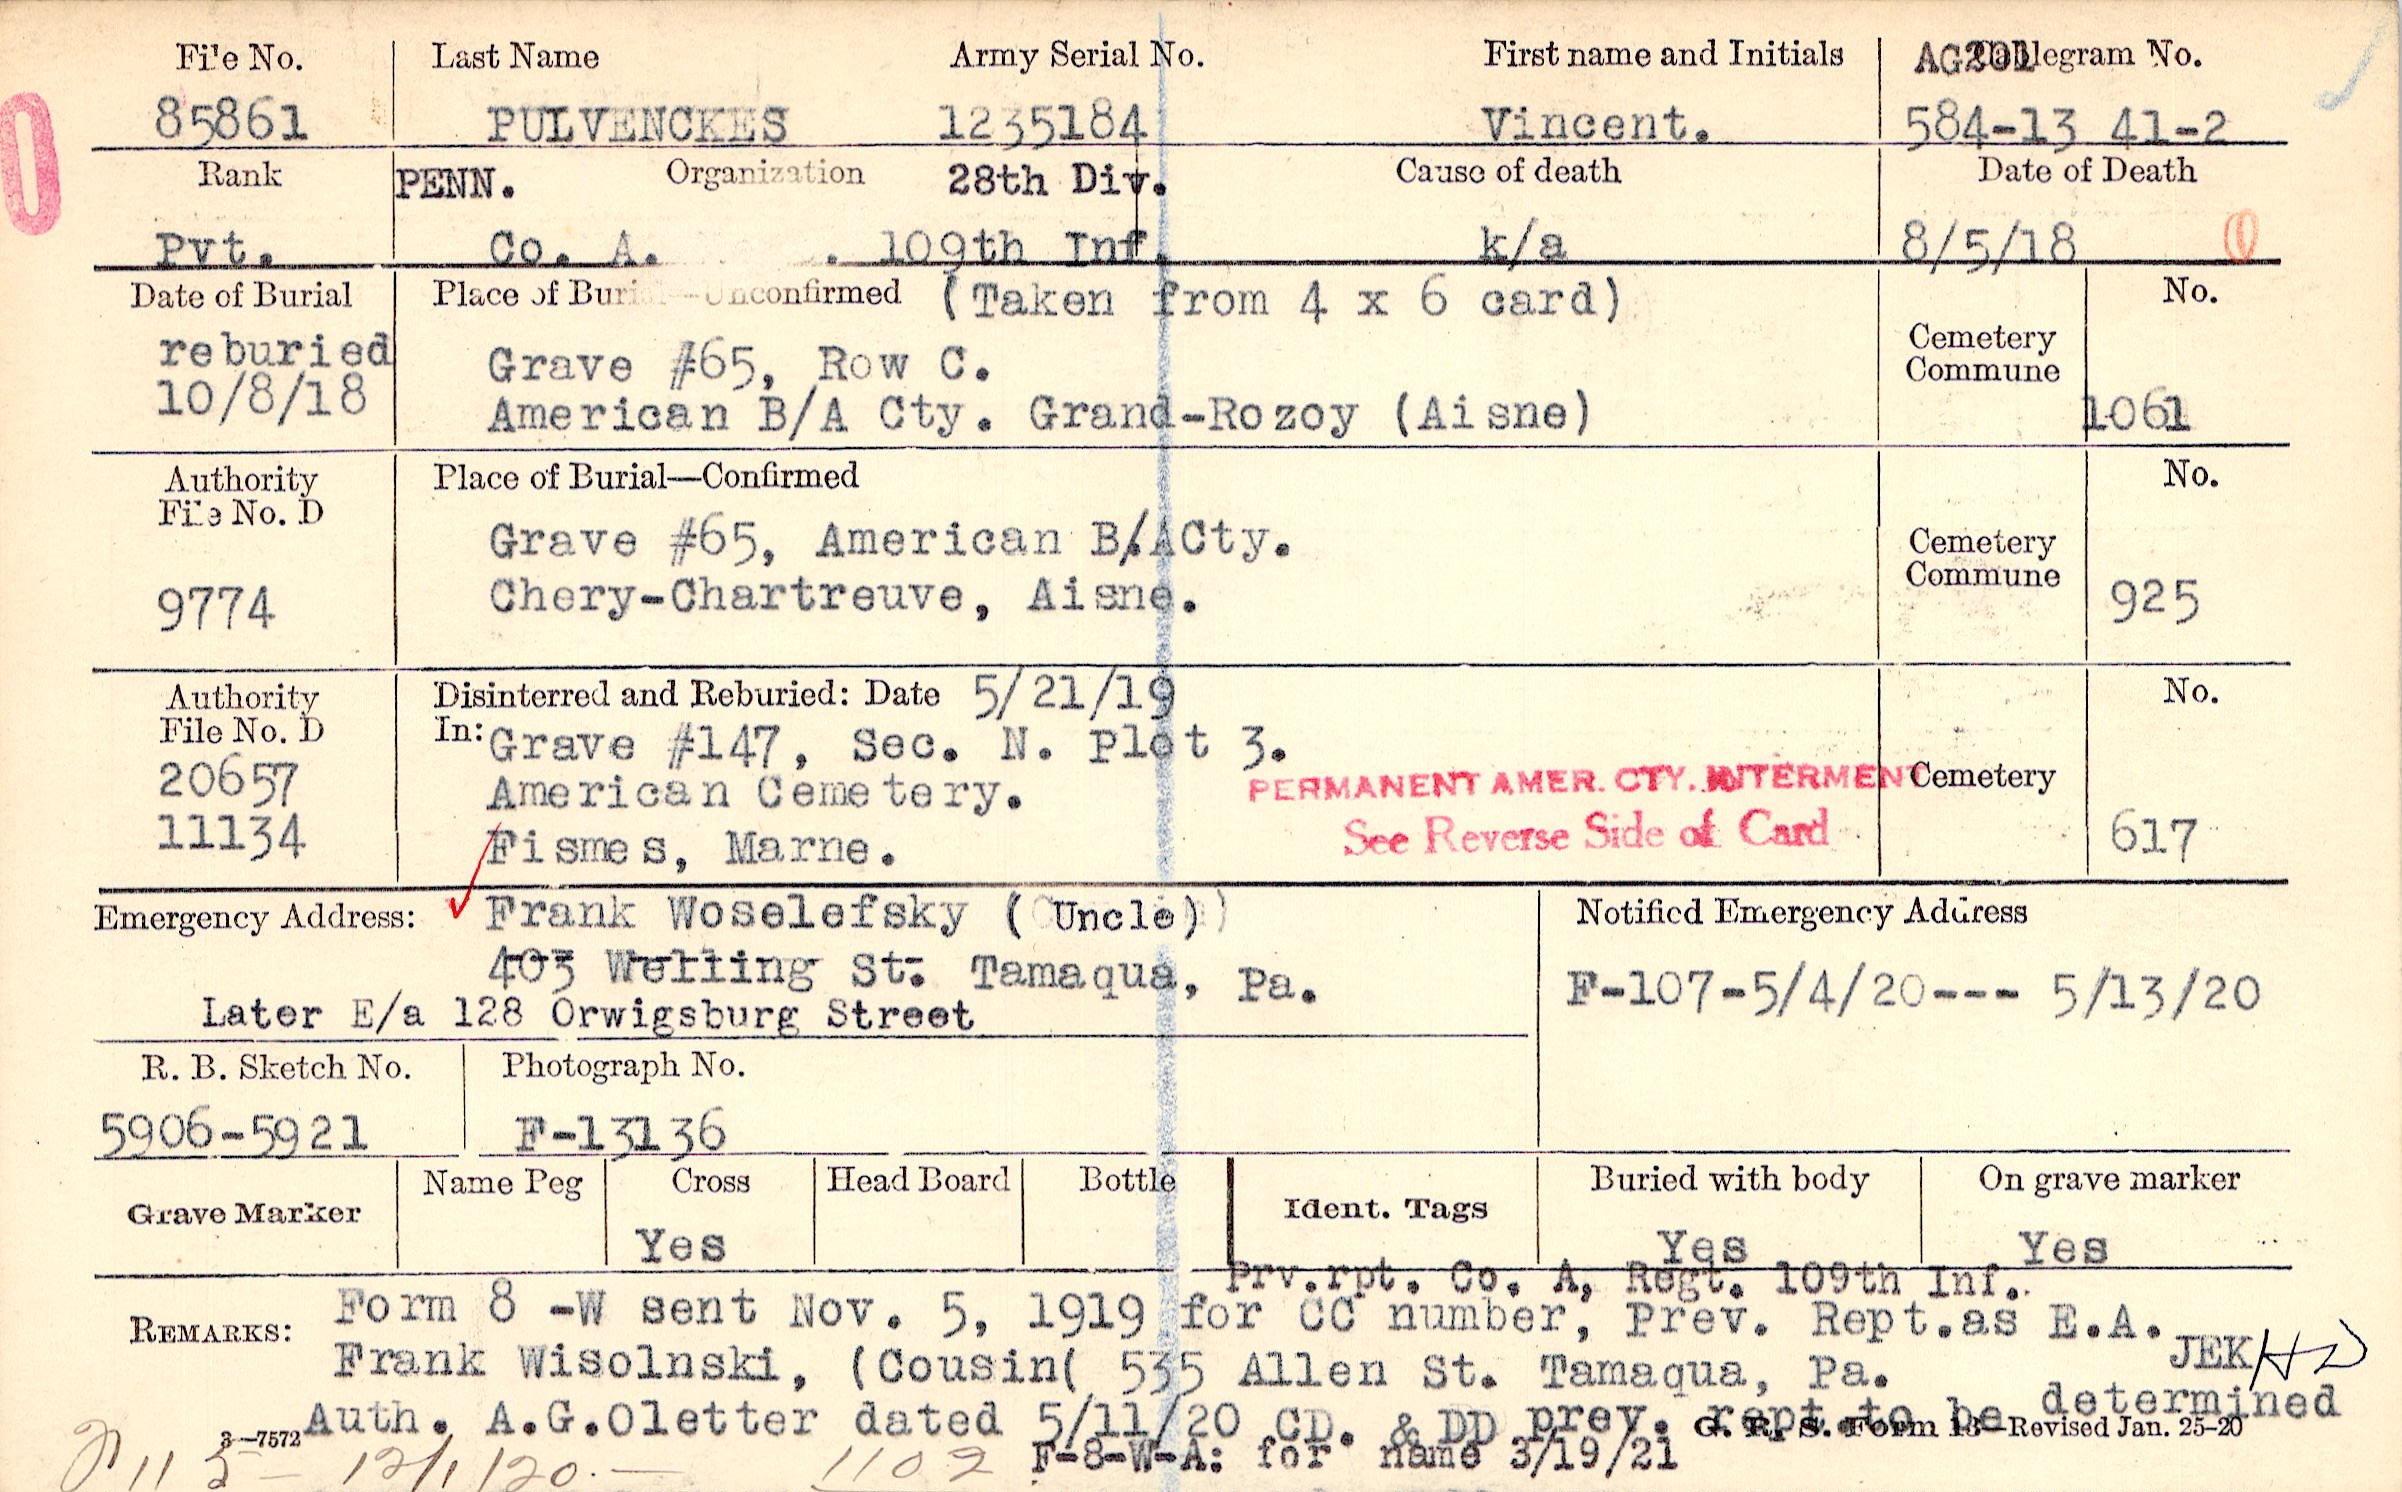 File No. Last Name Army Serial No. First name and Initials AG201 Cablegram No.
85861 PULVENCKES 1235184 Vincent. 584-13 41-2
Rank PENN. Organization 28th Div. Cause of death Date of Death
Pvt. Co. A. . 109th Inf. k/a 8/5/18 0
Date of Burial Place of Burial—Unconfirmed (Taken from 4 x 6 card) No.
reburied Grave #65, Row C. Cemetery
10/8/18 American B/A Cty. Grand-Rozoy (Aisne) Commune 1061
Authority Place of Burial—Confirmed No.
File No. D
Grave #65, American B/ACty. Cemetery
9774 Chery-Chartreuve, Aisne. Commune 925
Authority Disinterred and Reburied: Date 5/21/19 No.
File No. D In: Grave #147, Sec. N. Plot 3.
20657 American Cemetery. PERMANENT AMER. CTY. INTERMENT Cemetery
11134 Fismes, Marne. See Reverse Side of Card 617
Emergency Address: Frank Woselefsky (Uncle) Notified Emergency Address
403 Welling St. Tamaqua, Pa. F-107-5/4/20--- 5/13/20
Later E/a 128 Orwigsburg Street
R. B. Sketch No. Photograph No.
5906-5921 F-13136
Grave Marker Name Peg Cross Head Board Bottle Ident. Tags Buried with body On grave marker
Yes Yes Yes
Prv.rpt. Co. A, Regt. 109th Inf.
REMARKS: Form 8 -W sent Nov. 5, 1919 for CC number, Prev. Rept.as E.A.
Frank Wisolnski, (Cousin( 535 Allen St. Tamaqua, Pa. JEK
Auth. A.G.Oletter dated 5/11/20 CD. & DD prev. rept.to be determined
3—7572 G. R. S. Form 13—Revised Jan. 25-20
F-8-W-A: for name 3/19/21
12/1/20.— 1102